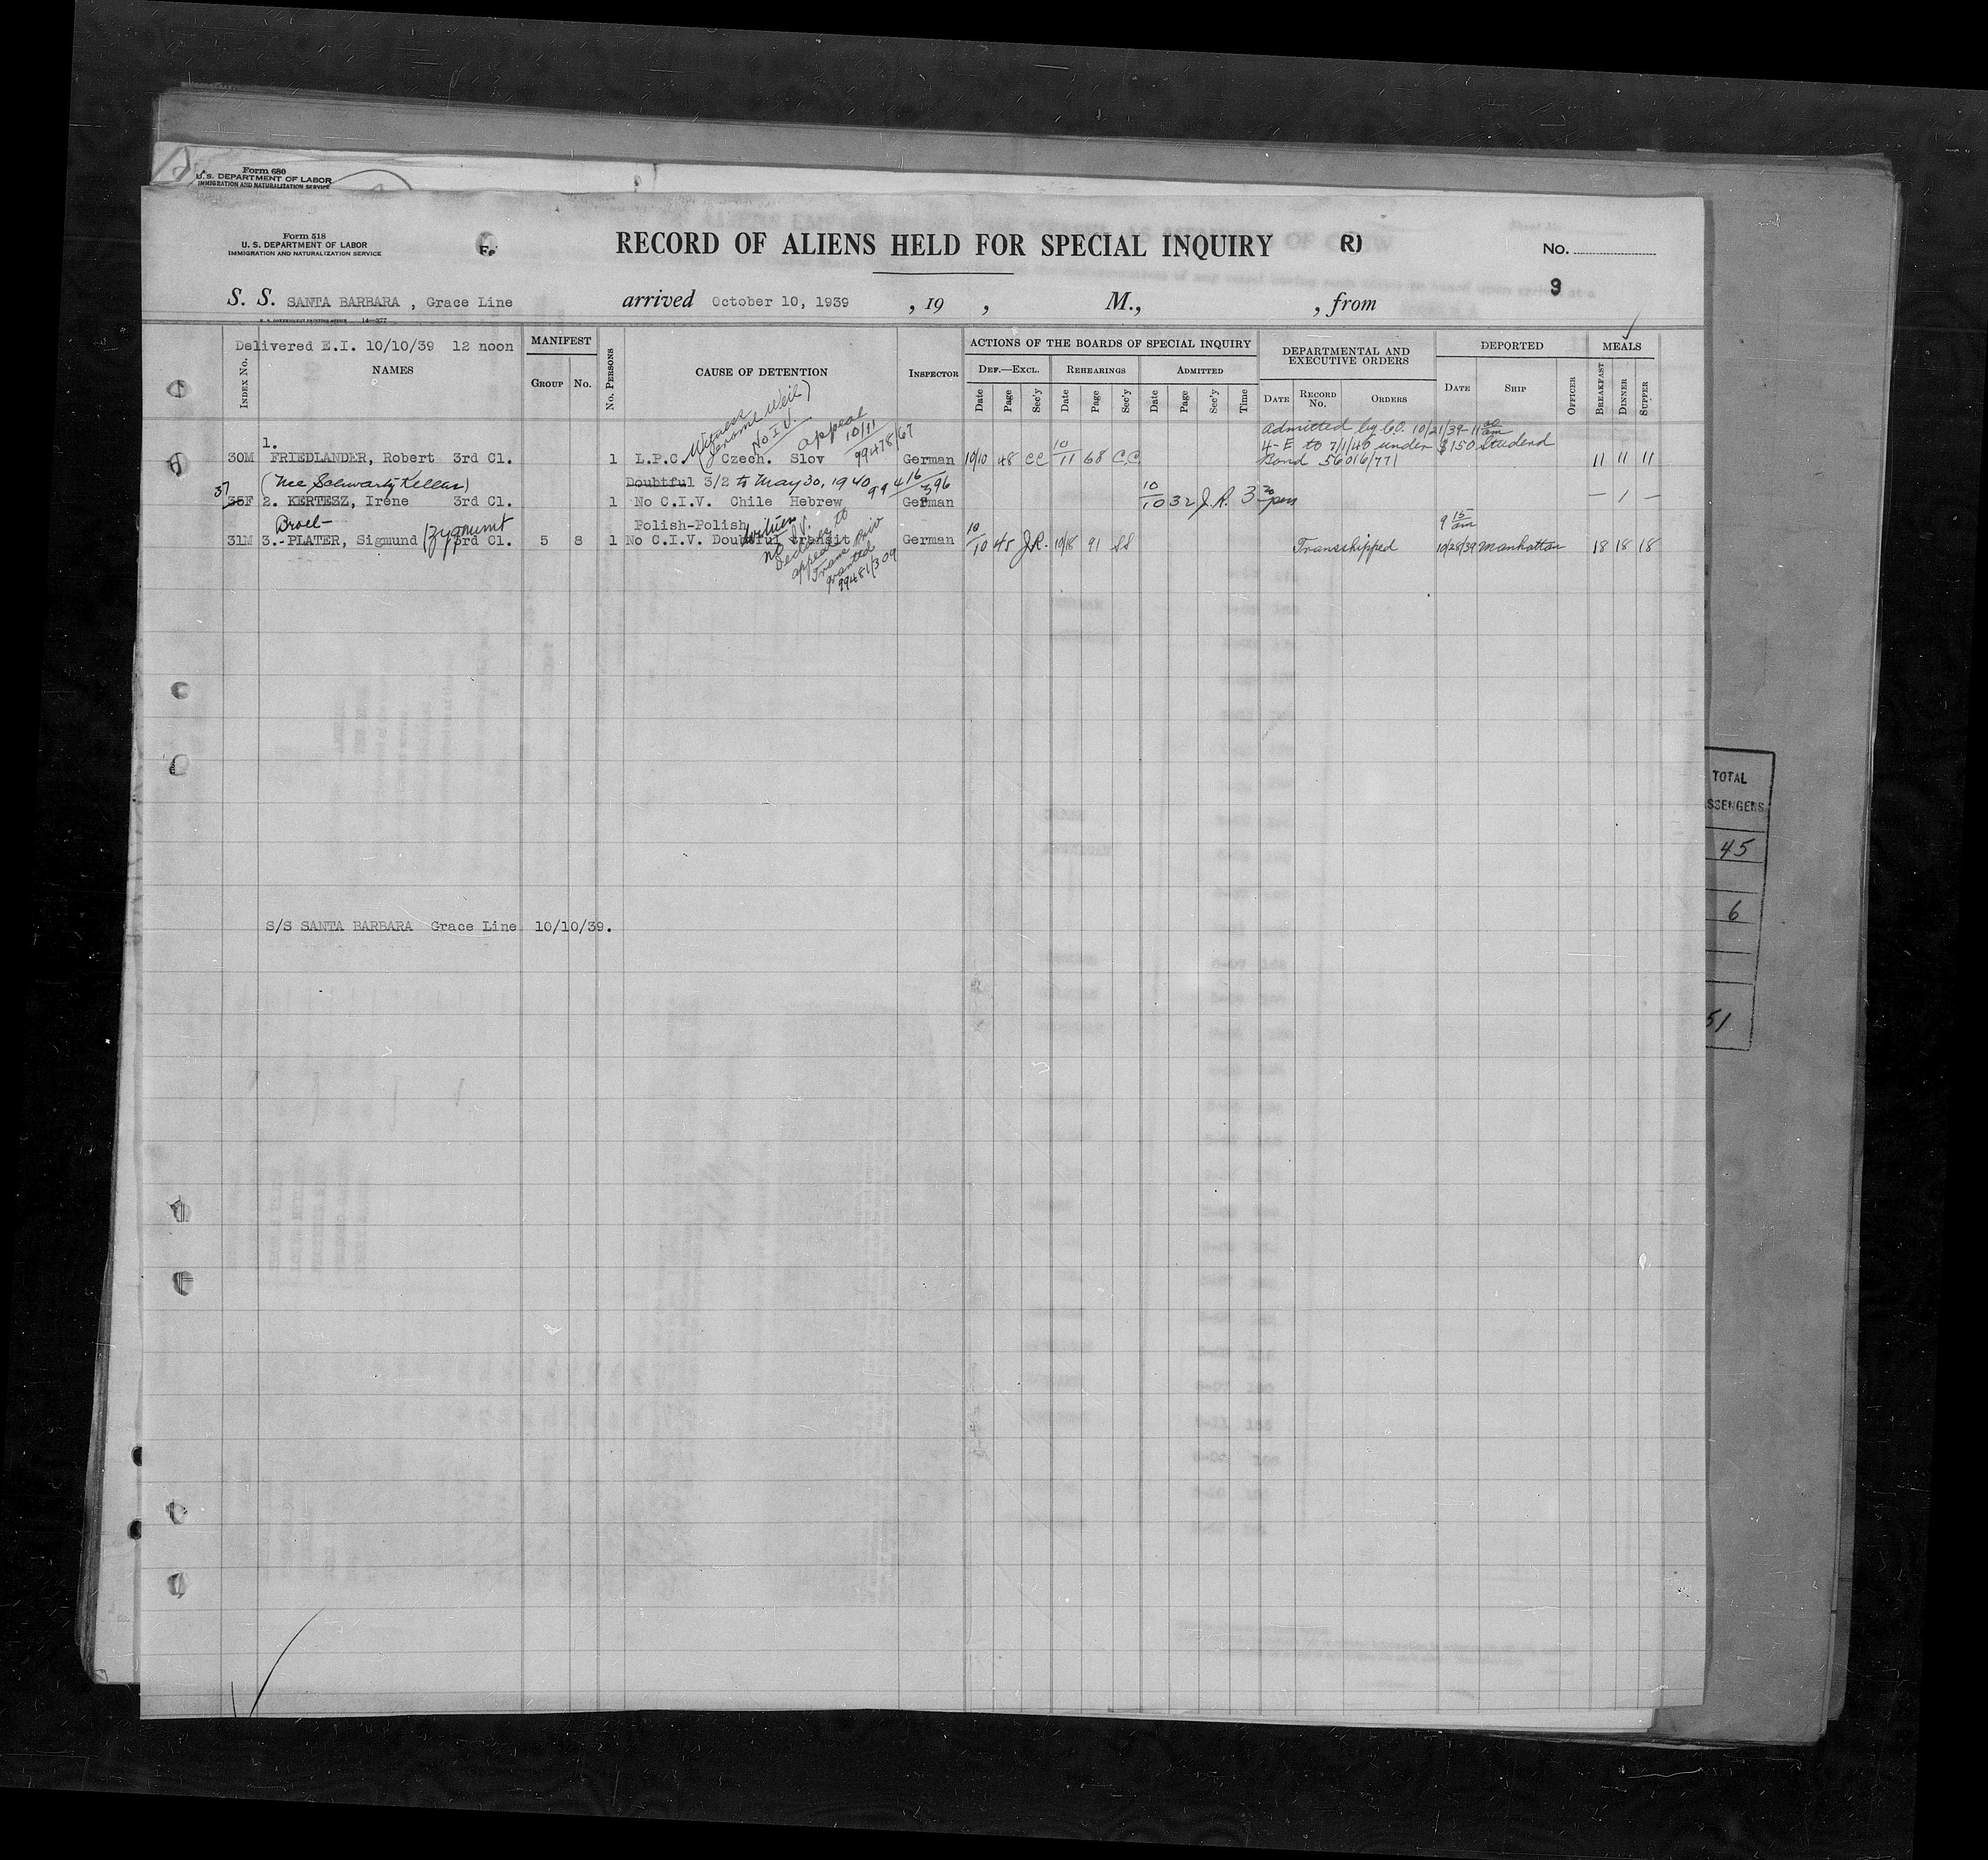 Form 680
U.S. DEPARTMENT OF LABOR
IMMIGRATION AND NATURALIZATION SERVICE
Form 518
U. S. DEPARTMENT OF LABOR
IMMIGRATION AND NATURALIZATION SERVICE
RECORD OF ALIENS HELD FOR SPECIAL INQUIRY
R)
No.
9
S. S. SANTA BARBARA , Grace Line arrived October 10, 1939 , 19 , M., , from
14—377
Delivered E.I. 10/10/39 12 noon
Index No.
NAMES
MANIFEST
Group
No.
No. Persons
CAUSE OF DETENTION
Inspector
ACTIONS OF THE BOARDS OF SPECIAL INQUIRY
Def.—Excl.
Rehearings
Admitted
Date Page Sec'y Date Page Sec'y Date Page Sec'y Time
DEPARTMENTAL AND
EXECUTIVE ORDERS
Date
Record No.
Orders
DEPORTED
Date
Ship
Officer
MEALS
Breakfast
Dinner
Supper
Witness
(Jerome Weil)
No I.V.
appeal
10/11
99478/67
Admitted by C.O. 10/21/39 - 11 00 am
4-E to 7/1/40 under $150 Student
Bond 56016/771
1.
30M FRIEDLANDER, Robert 3rd Cl. 1 L.P.C. Czech. Slov German 10/10 48 CC 10/11 68 C.C. 11 11 11
(Nee Schwartz Kellan)
Doubtful 3/2 to May 30, 1940 99416/396
37
35F 2. KERTESZ, Irene 3rd Cl. 1 No C.I.V. Chile Hebrew German 10/10 32 J.R. 3 20 pm — 1 —
Broel-
Zygmunt
Polish-Polish
31M 3.-PLATER, Sigmund 3rd Cl. 5 8 1 No C.I.V. Doubtful transit German 10/10 45 J.R. 10/18 91 SS Transshipped 9 15 am 10/28/39 Manhattan 18 18 18
witness
no I.V.
appeal
Trans Priv
granted
99481/309
S/S SANTA BARBARA Grace Line 10/10/39.
TOTAL
SSENGERS
45
6
51